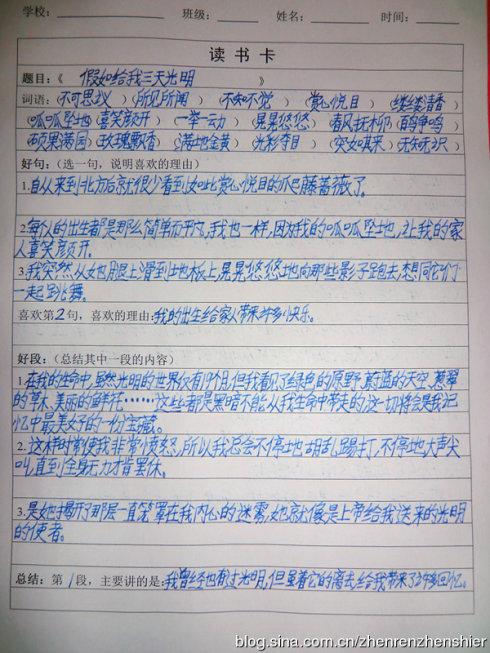 学校：______ 班级：______ 姓名：______ 时间：______
读 书 卡
题目：《 假如给我三天光明 》
词语：（不可思议）（所见所闻）（不知不觉）（赏心悦目）（缕缕清香）
（呱呱坠地）（喜笑颜开）（一举一动）（晃晃悠悠）（春风抚柳）（百鸟争鸣）
（硕果满园）（玫瑰飘香）（满地金黄）（光彩夺目）（突如其来）（无知无识）
好句：（选一句，说明喜欢的理由）
1.自从来到北方后就很少看到如此赏心悦目的爬藤蔷薇了。
2.每个人的出生都是那么简单而平凡，我也一样，因为我的呱呱坠地，让我的家
人喜笑颜开。
3.我突然从她腿上滑到地板上，晃晃悠悠地向那些影子跑去，想同它们
一起跳舞。
喜欢第2句，喜欢的理由：我的出生给家人带来许多快乐。
好段：（总结其中一段的内容）
1.在我的生命中，虽然光明的世界仅有19个月，但我看见了绿色的原野、蔚蓝的天空、葱翠
的草木、美丽的鲜花……这些都是黑暗不能从我生命中带走的，这一切将会是我记
忆中最美好的一份宝藏。
2.这样时常使我非常愤怒，所以我总会不停地胡乱踢打，不停地大声尖
叫，直到全身无力才肯罢休。
3.是她揭开了那层一直笼罩在我内心的迷雾，她就像是上帝给我送来的光明
的使者。
总结：第 1 段，主要讲的是：我曾经也有过光明，但是着它的离去，给我带来了许多回忆。
blog.sina.com.cn/zhenrenzhenshier